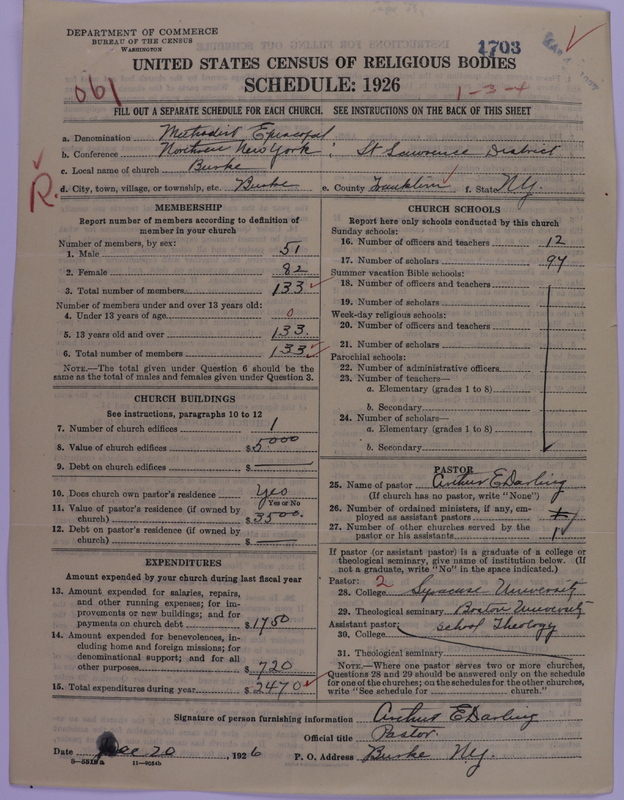 DEPARTMENT OF COMMERCE
BUREAU OF THE CENSUS
WASHINGTON
1703
UNITED STATES CENSUS OF RELIGIOUS BODIES
SCHEDULE: 1926
061
1-3-4
FILL OUT A SEPARATE SCHEDULE FOR EACH CHURCH. SEE INSTRUCTIONS ON THE BACK OF THIS SHEET
a. Denomination Methodist Episcopal
b. Conference Northern New York; St Lawrence District
c. Local name of church Burke
R.
d. City, town, village, or township, etc. Burke e. County Franklin f. State N.Y.
MEMBERSHIP
Report number of members according to definition of
member in your church
Number of members, by sex:
1. Male 51
2. Female 82
3. Total number of members 133
Number of members under and over 13 years old:
4. Under 13 years of age 0
5. 13 years old and over 133.
6. Total number of members 133
NOTE.—The total given under Question 6 should be the
same as the total of males and females given under Question 3.
CHURCH BUILDINGS
See instructions, paragraphs 10 to 12
7. Number of church edifices 1
8. Value of church edifices $5000
9. Debt on church edifices $
10. Does church own pastor's residence Yes
Yes or No
11. Value of pastor's residence (if owned by
church) $3500.
12. Debt on pastor's residence (if owned by
church) $
EXPENDITURES
Amount expended by your church during last fiscal year
13. Amount expended for salaries, repairs,
and other running expenses; for im-
provements or new buildings; and for
payments on church debt $1750
14. Amount expended for benevolences, in-
cluding home and foreign missions; for
denominational support; and for all
other purposes $720
15. Total expenditures during year $2470
CHURCH SCHOOLS
Report here only schools conducted by this church
Sunday schools:
16. Number of officers and teachers 12
17. Number of scholars 97
Summer vacation Bible schools:
18. Number of officers and teachers
19. Number of scholars
Week-day religious schools:
20. Number of officers and teachers
21. Number of scholars
Parochial schools:
22. Number of administrative officers
23. Number of teachers—
a. Elementary (grades 1 to 8)
b. Secondary
24. Number of scholars—
a. Elementary (grades 1 to 8)
b. Secondary
PASTOR
25. Name of pastor Arthur E Darling
(If church has no pastor, write "None")
26. Number of ordained ministers, if any, em-
ployed as assistant pastors
27. Number of other churches served by the
pastor or his assistants 1
If pastor (or assistant pastor) is a graduate of a college or
theological seminary, give name of institution below. (If
not a graduate, write "No" in the space indicated.)
Pastor: 2
28. College Syracuse University
29. Theological seminary Boston University
Assistant pastor: School Theology
30. College
31. Theological seminary
NOTE.—Where one pastor serves two or more churches,
Questions 28 and 29 should be answered only on the schedule
for one of the churches; on the schedules for the other churches,
write "See schedule for church."
Signature of person furnishing information Arthur E Darling
Official title Pastor.
Date Dec 20, 1926 P. O. Address Burke N.Y.
8-5518a 11-9034b